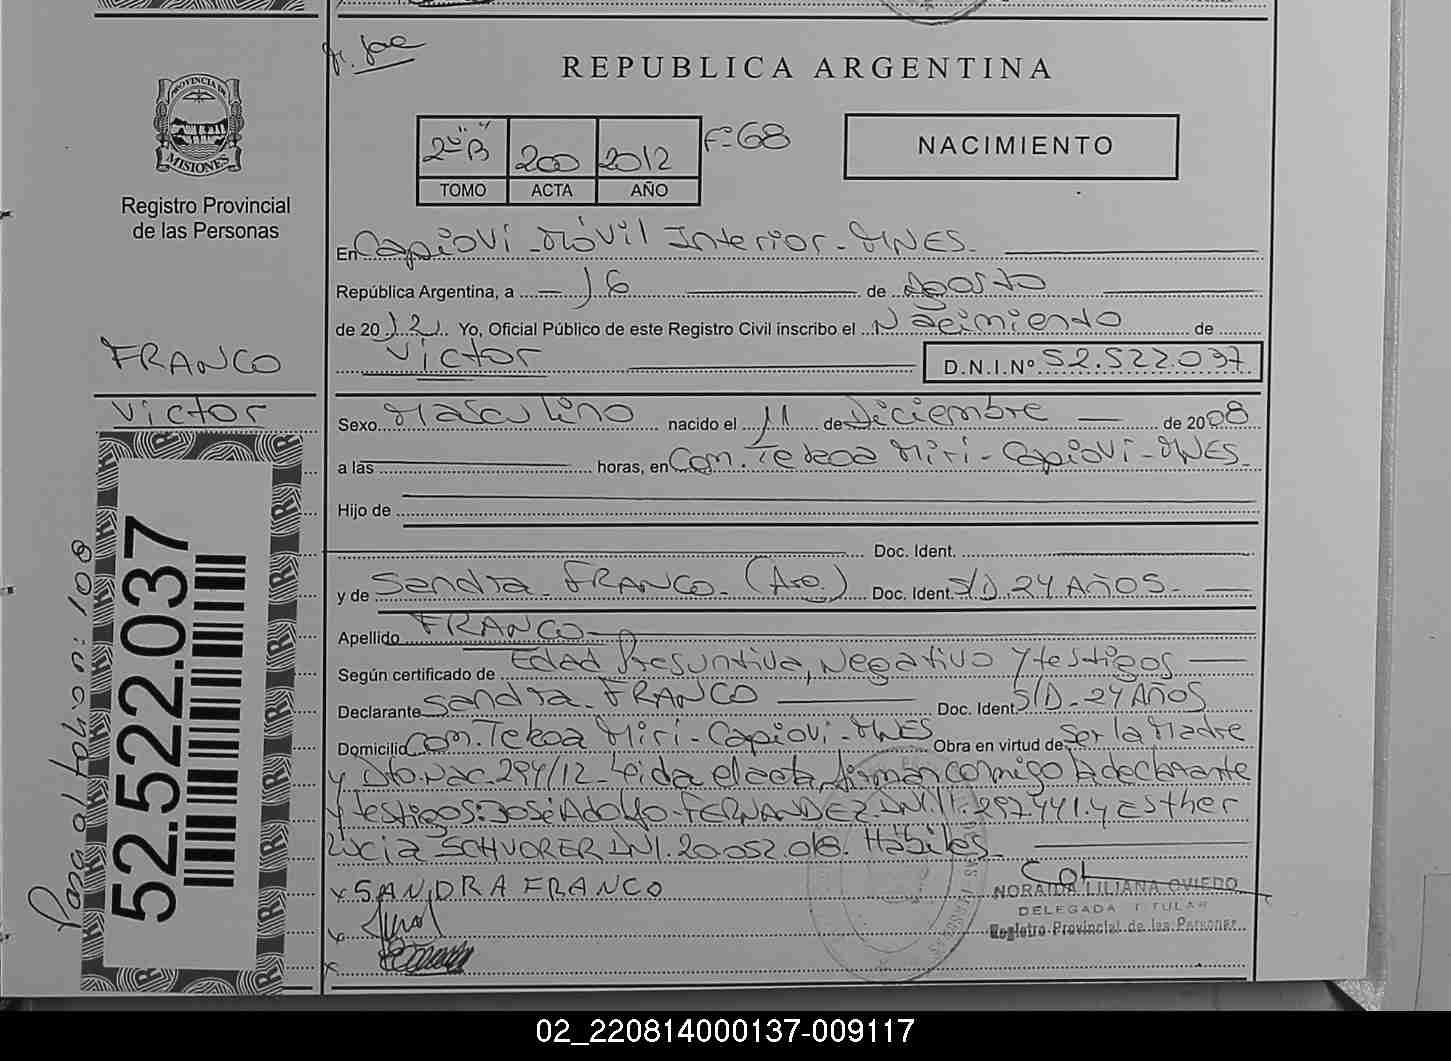 REPUBLICA ARGENTINA
PROVINCIA DE
MISIONES
Registro Provincial
de las Personas
2º "B" 200 2012 Fº 68
TOMO ACTA AÑO
NACIMIENTO
En Capioví - Móvil Interior - MNES.
República Argentina, a 16 de Agosto
de 2012. Yo, Oficial Público de este Registro Civil inscribo el Nacimiento de
Victor D.N.I.Nº 52.522.037
FRANCO
Victor
Sexo Masculino nacido el 11 de Diciembre de 2008
a las horas, en Com. Tekoa Miri - Capioví - MNES
Hijo de
Doc. Ident.
y de Sandra FRANCO. (Arg.) Doc. Ident. S/D. 24 AÑOS.
Apellido FRANCO
Según certificado de Edad Presuntiva, Negativo y testigos
Declarante Sandra FRANCO Doc. Ident. S/D - 24 AÑOS
Domicilio Com. Tekoa Miri - Capioví - MNES Obra en virtud de Ser la Madre
y Dto. Nac. 294/12 - Leida el acta, firman conmigo la declarante
y testigos: José Adolfo FERNANDEZ. DNI. 11.297.441. y Esther
Lucia SCHVORER DNI. 20.052.016. Hábiles.
x SANDRA FRANCO
x
x
NORAIDA LILIANA OVIEDO
DELEGADA TITULAR
Registro Provincial de las Personas
Pasa al folio n: 108
52.522.037
02_220814000137-009117